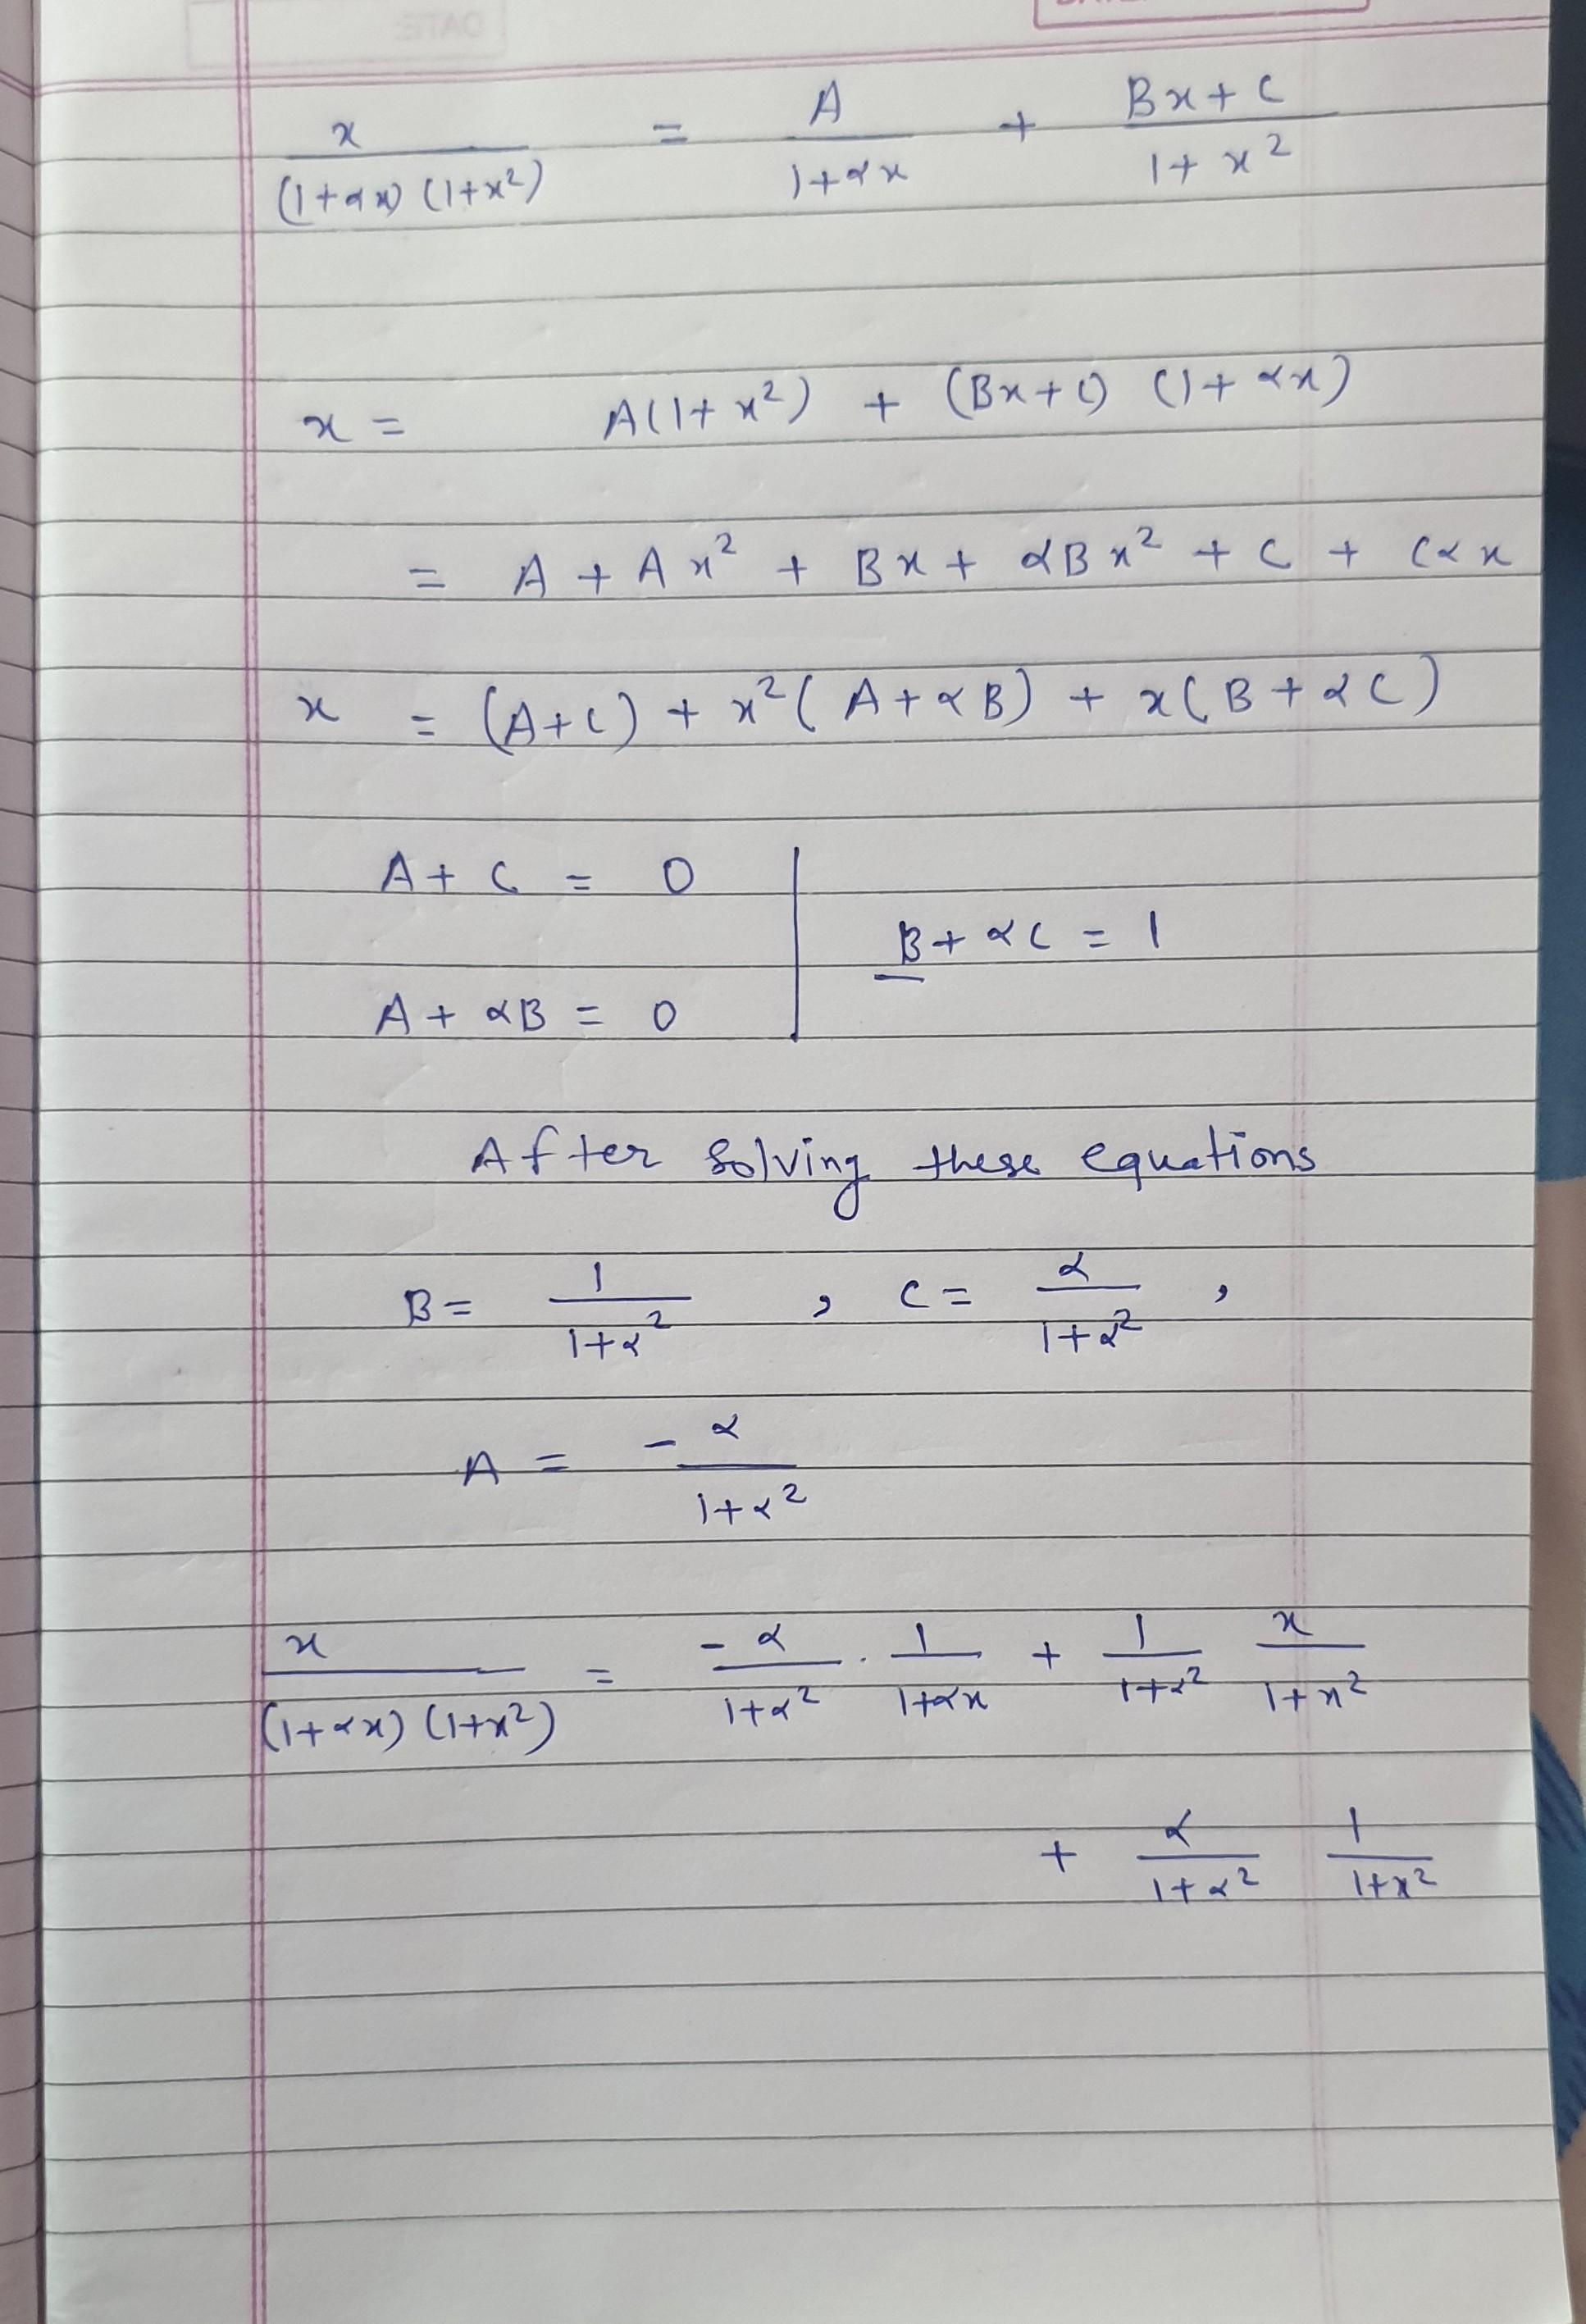 DATE
x/((1+αx)(1+x²)) = A/(1+αx) + (Bx+C)/(1+x²)
x = A(1+x²) + (Bx+C) (1+αx)
= A + Ax² + Bx + αBx² + C + Cαx
x = (A+C) + x²(A+αB) + x(B+αC)
A + C = 0
B + αC = 1
A + αB = 0
After solving these equations
B = 1/(1+α²) , C = α/(1+α²) ,
A = -α/(1+α²)
x/((1+αx)(1+x²)) = -α/(1+α²) · 1/(1+αx) + 1/(1+α²) x/(1+x²)
+ α/(1+α²) 1/(1+x²)